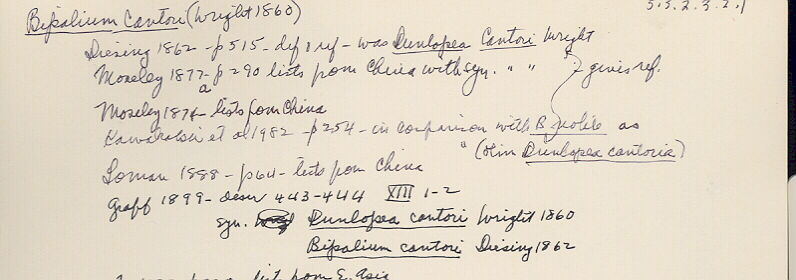 Bipalium Cantori (Wright 1860)
5.5.2.3.2.1
Diesing 1862 - p 515 - def & ref - was Dunlopea Cantori Wright
Moseley 1877a - p 290 lists from China with syn. " " } gives ref.
Moseley 1874 - lists from China
Kawakatsu et al 1982 - p 254 - in comparison with B. nobile as
" (olim Dunlopea cantoria)
Loman 1888 - p 64 - lists from China
Graff 1899 - descr 443-444 XIII 1-2
syn. Dunlopea cantori Wright 1860
Bipalium cantori Diesing 1862
list from E. Asia